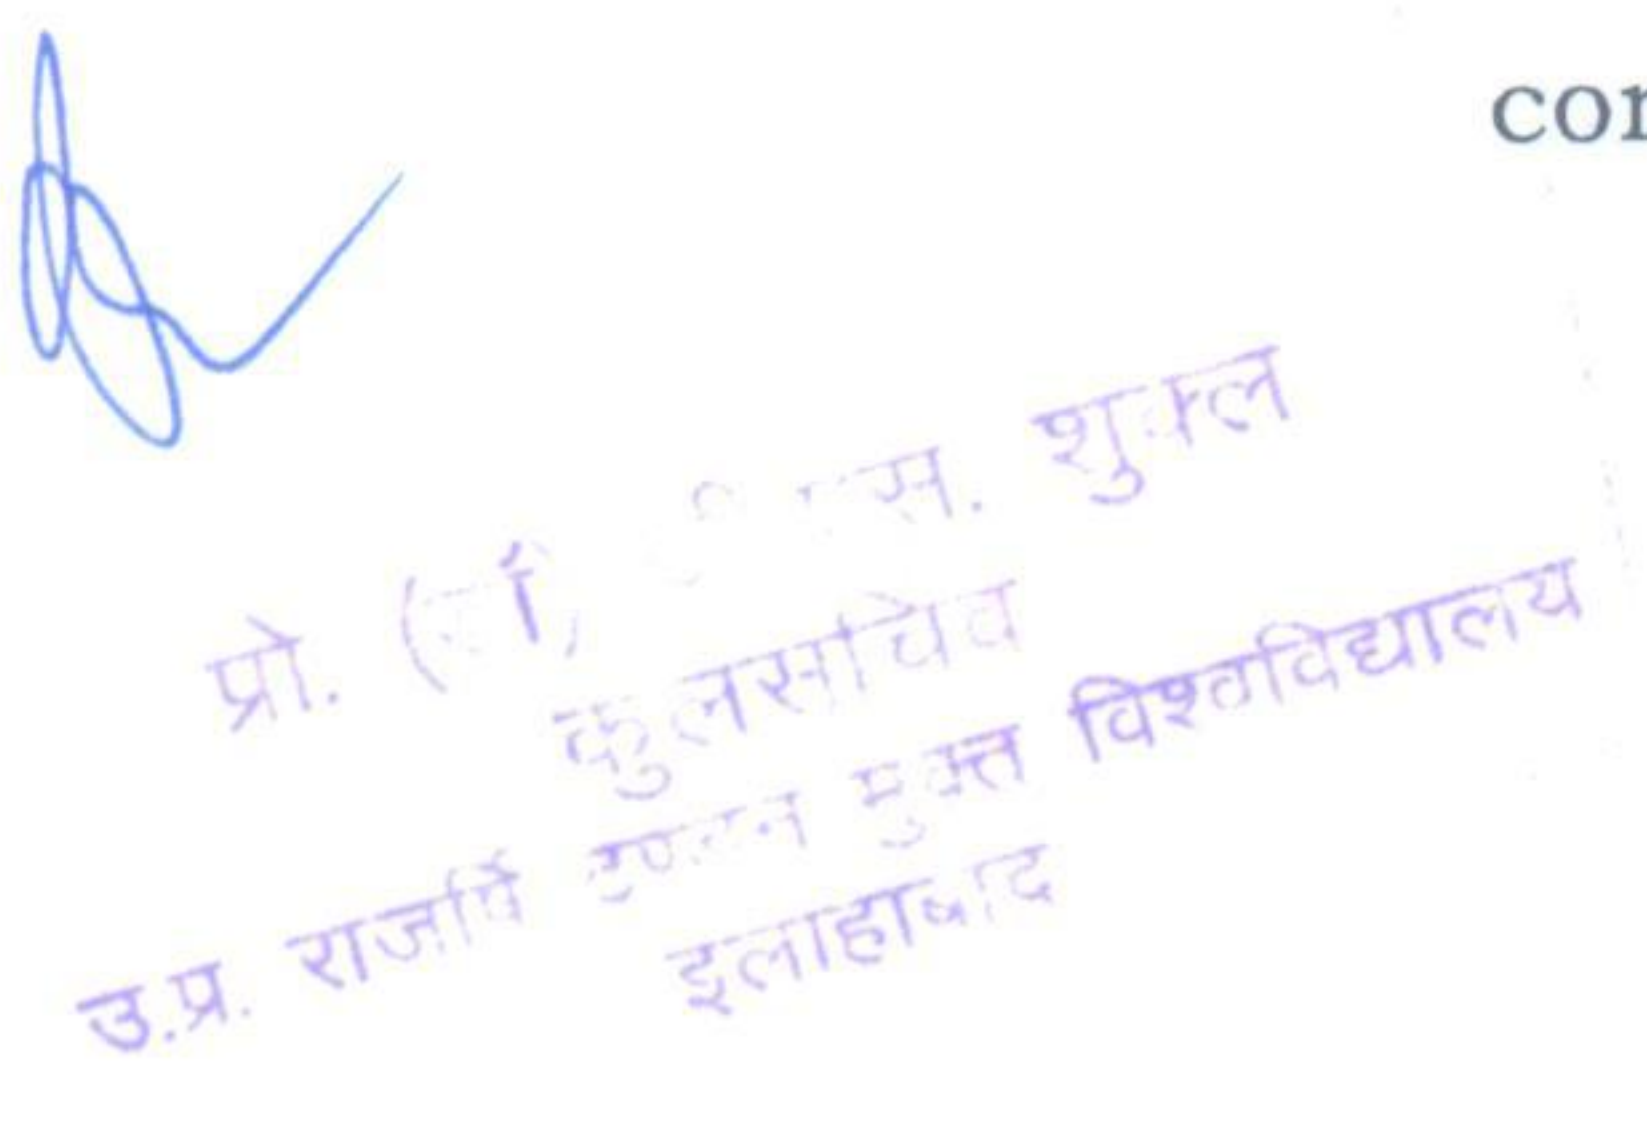 con
प्रो. शुक्ल
कुलसचिव
उ.प्र. राजर्षि टण्डन मुक्त विश्वविद्यालय
इलाहाबाद